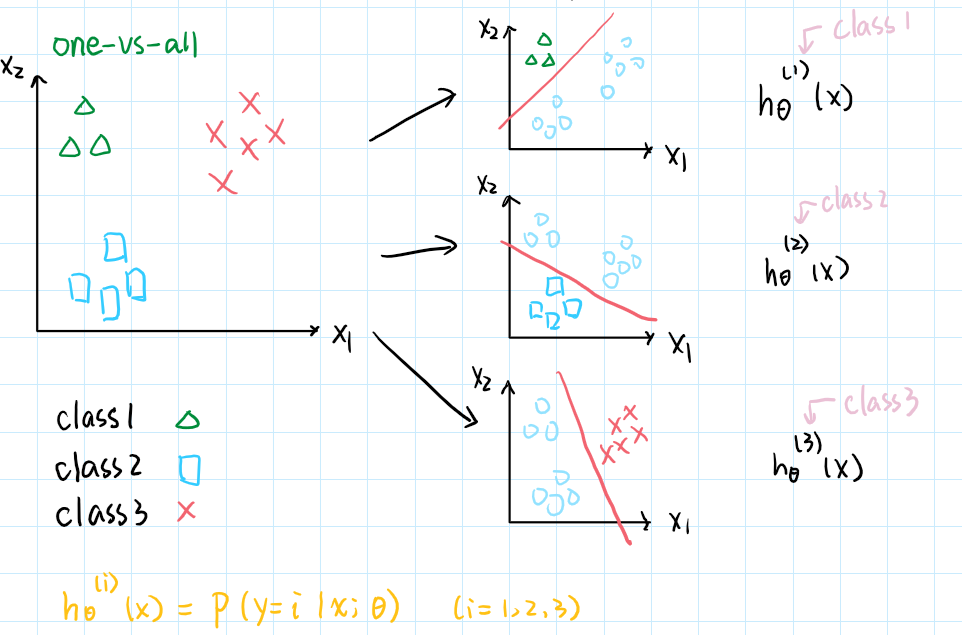 one-vs-all
x₂
x₁
class1
class2
class3
x₂
x₁
class1
hθ⁽¹⁾(x)
x₂
x₁
class2
hθ⁽²⁾(x)
x₂
x₁
class3
hθ⁽³⁾(x)
hθ⁽ⁱ⁾(x) = P(y=i|x;θ) (i=1,2,3)